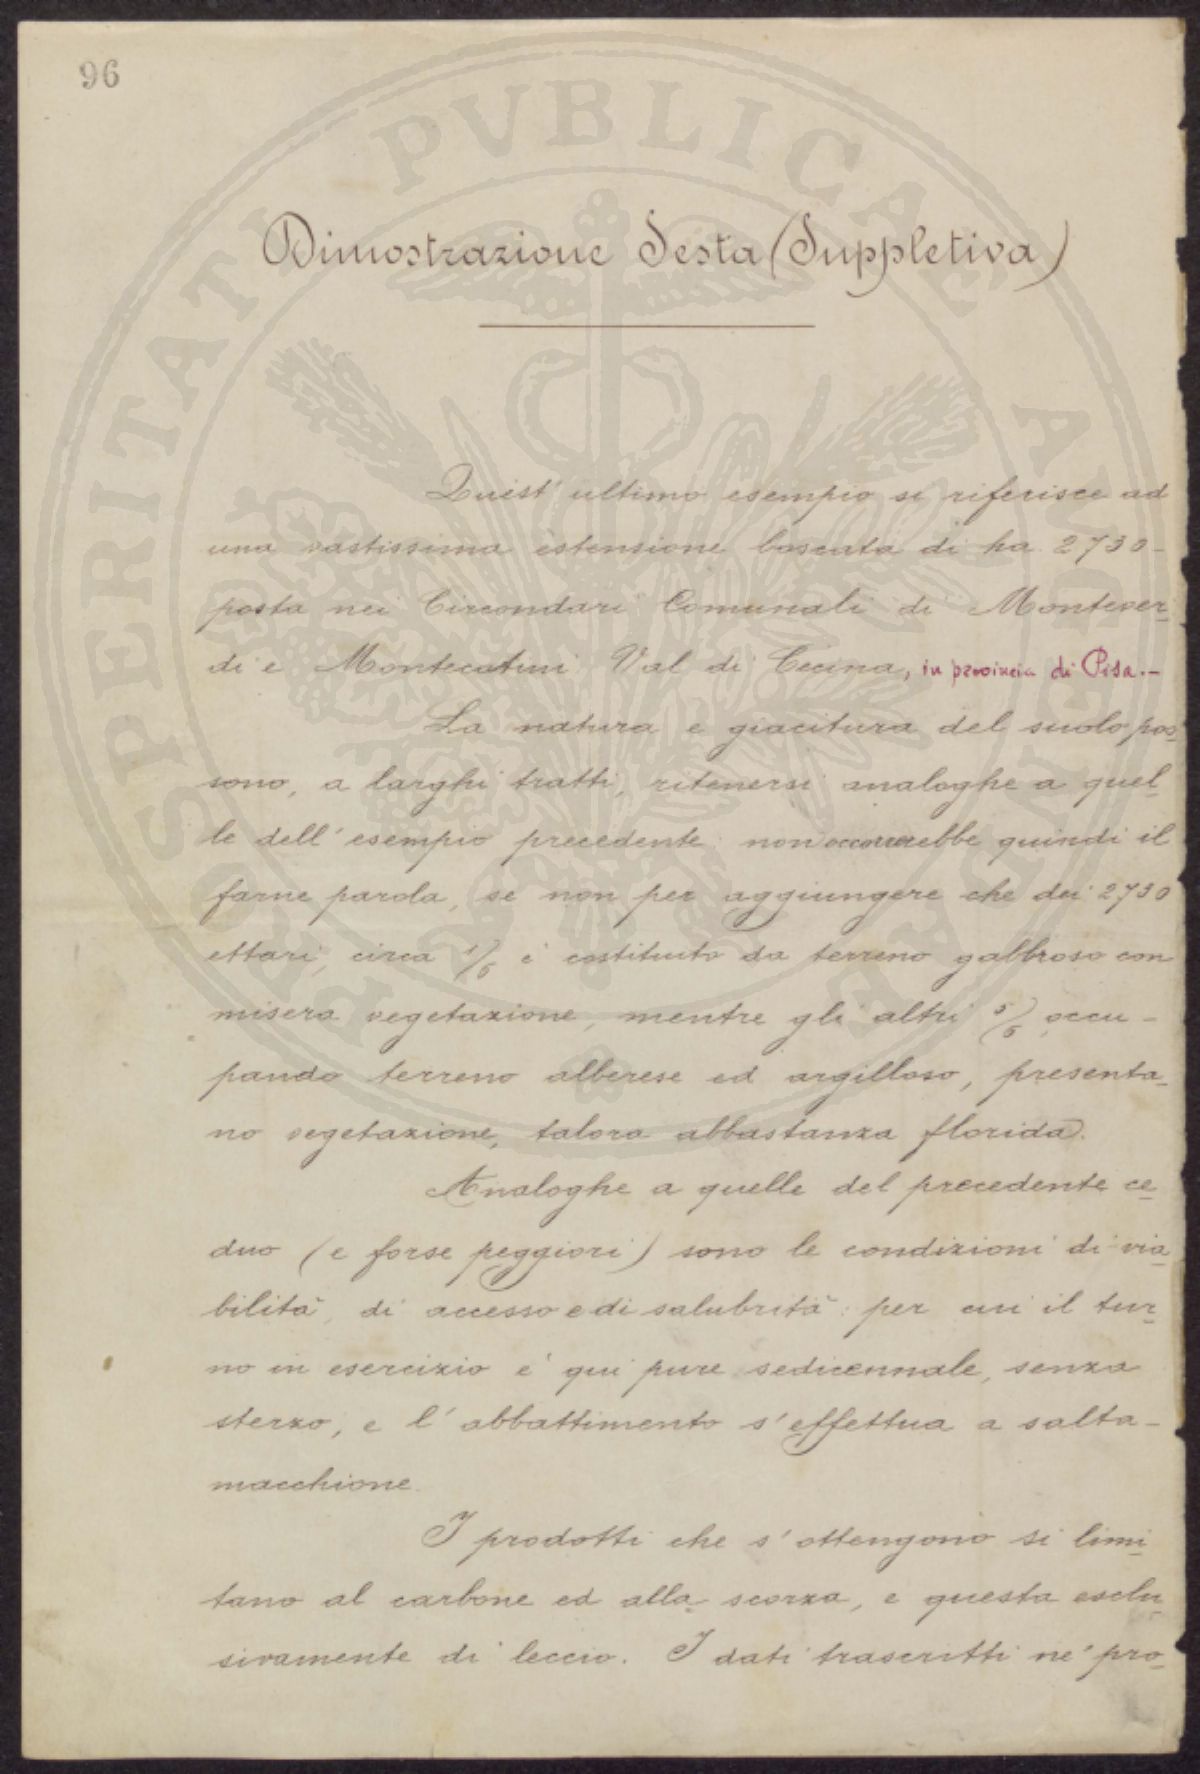 96
PROSPERITATI PVBLICAE AVGENDAE
Dimostrazione Sesta (Suppletiva)
Quest' ultimo esempio si riferisce ad
una vastissima estensione boscata di ha 2730-
posta nei Circondari Comunali di Montever-
di e Montecatini Val di Cecina, in provincia di Pisa.-
La natura e giacitura del suolo pos-
sono, a larghi tratti, ritenersi analoghe a quel-
le dell' esempio precedente: non occorrerebbe quindi il
farne parola, se non per aggiungere che dei 2730
ettari, circa 1/6 è costituito da terreno gabbroso con
misera vegetazione, mentre gli altri 5/6 occu-
pando terreno alberese ed argilloso, presenta-
no vegetazione, talora abbastanza florida.
Analoghe a quelle del precedente ce-
duo (e forse peggiori) sono le condizioni di via-
bilità, di accesso e di salubrità: per cui il tur-
no in esercizio è qui pure sedicennale, senza
sterzo, e l' abbattimento s' effettua a salta-
macchione.
I prodotti che s' ottengono si limi-
tano al carbone ed alla scorza, e questa esclu-
sivamente di leccio. I dati trascritti ne' pro-